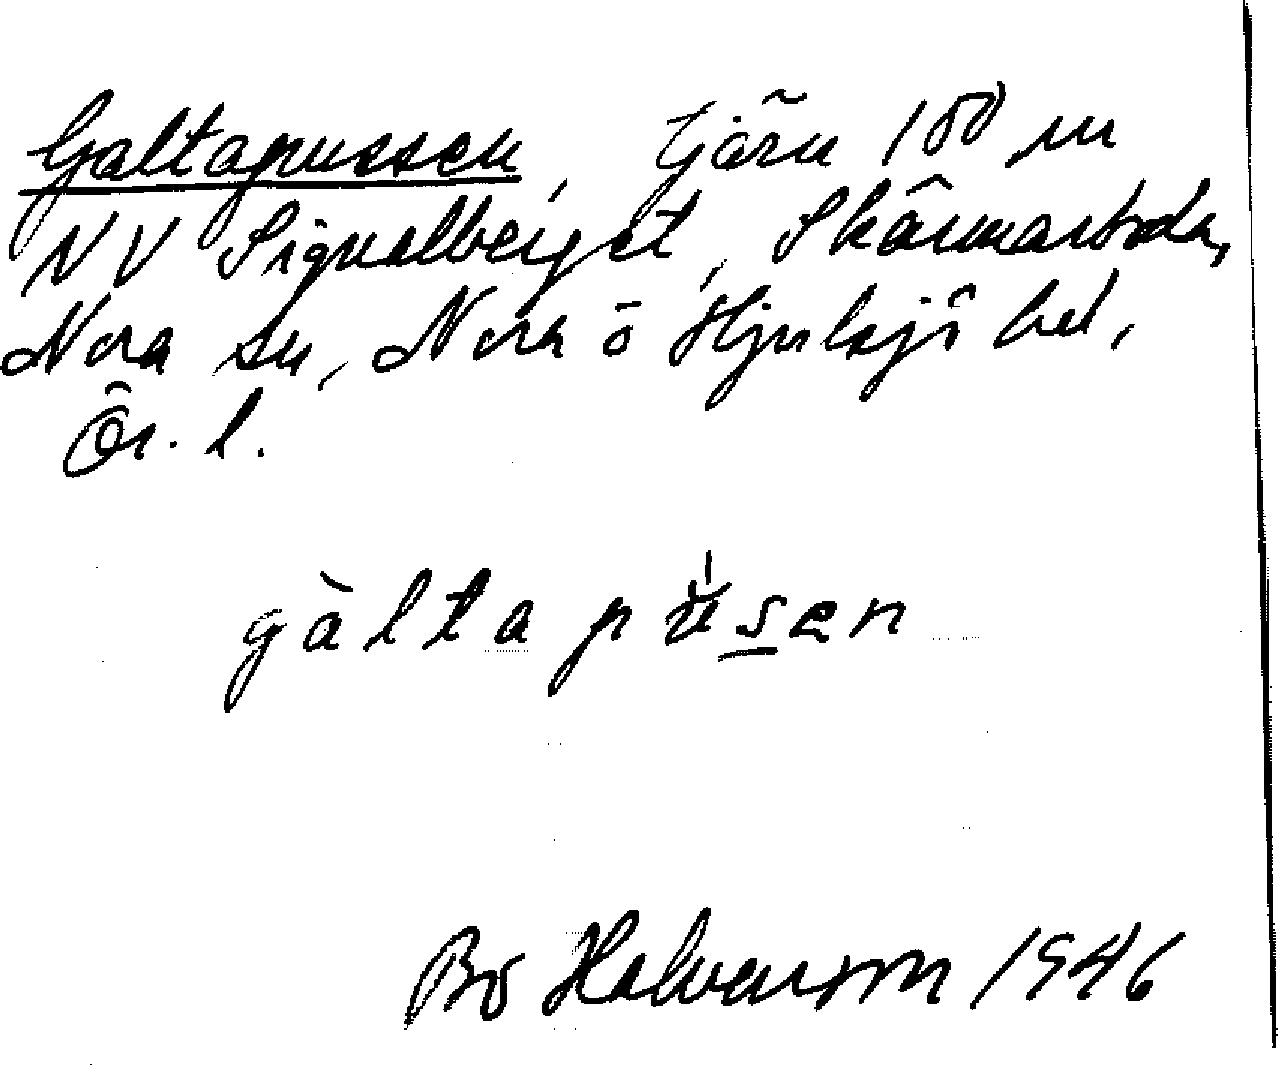 Galtapussen, tjärn 100 m
NV Signalberget, Skärmarboda,
Nora sn, Nora o Hjulsjö bd,
Ör. l.
gàltapu̍sen
Bo Halvarson 1946